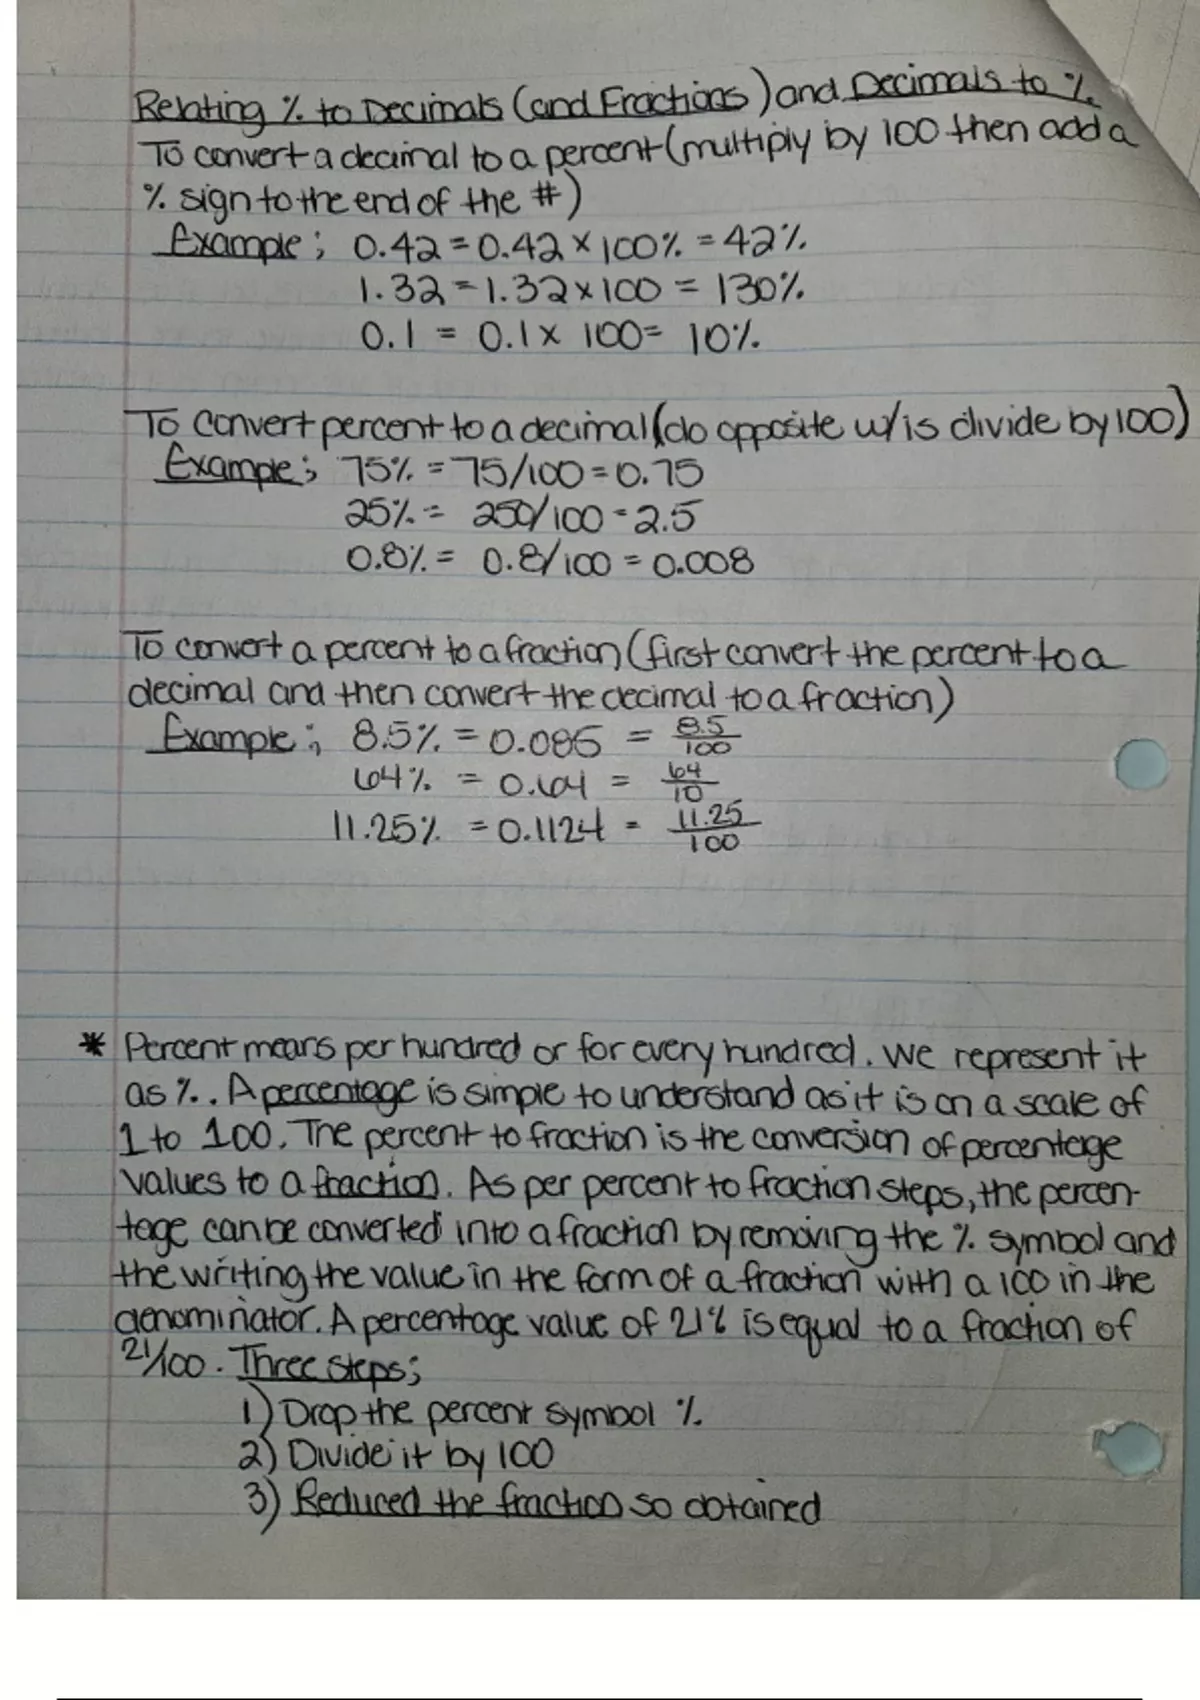 Relating % to Decimals (and Fractions) and Decimals to %
To convert a decimal to a percent (multiply by 100 then add a
% sign to the end of the #)
Example; 0.42 = 0.42 x 100% = 42%
1.32 = 1.32 x 100 = 130%
0.1 = 0.1 x 100 = 10%
To convert percent to a decimal (do opposite w/ is divide by 100)
Example; 75% = 75/100 = 0.75
25% = 250/100 = 2.5
0.8% = 0.8/100 = 0.008
To convert a percent to a fraction (first convert the percent to a
decimal and then convert the decimal to a fraction)
Example; 8.5% = 0.085 = 8.5/100
64% = 0.64 = 64/10
11.25% = 0.1124 = 11.25/100
* Percent means per hundred or for every hundred. We represent it
as %. A percentage is simple to understand as it is on a scale of
1 to 100. The percent to fraction is the conversion of percentage
values to a fraction. As per percent to fraction steps, the percen-
tage can be converted into a fraction by removing the % symbol and
the writing the value in the form of a fraction with a 100 in the
denominator. A percentage value of 21% is equal to a fraction of
21/100. Three steps;
1) Drop the percent symbol %
2) Divide it by 100
3) Reduced the fraction so obtained